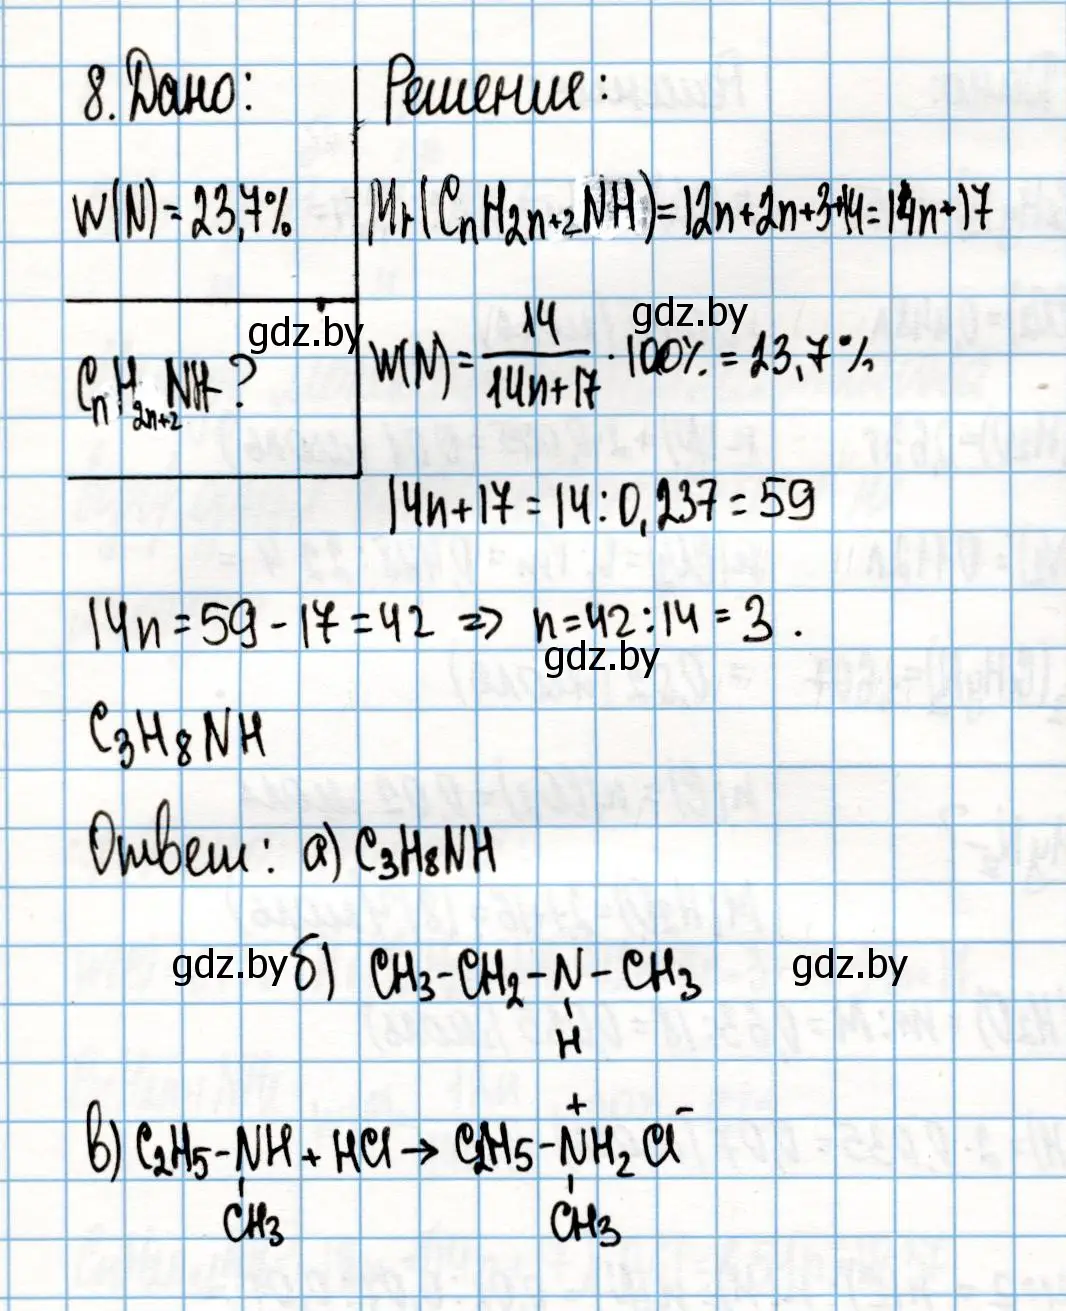 8. Дано:
Решение:
W(N) = 23,7%
Mr(CnH2n+2NH) = 12n+2n+3+14 = 14n+17
gdz.by
gdz.by
CnH2n+2NH - ?
W(N) = 14/14n+17 · 100% = 23,7%
14n+17 = 14 : 0,237 = 59
14n = 59 - 17 = 42 => n = 42 : 14 = 3 .
gdz.by
C3H8NH
Ответ: а) C3H8NH
gdz.by
б) CH3-CH2-N-CH3
gdz.by
H
в) C2H5-NH + HCl → C2H5-N+H2Cl-
CH3 CH3